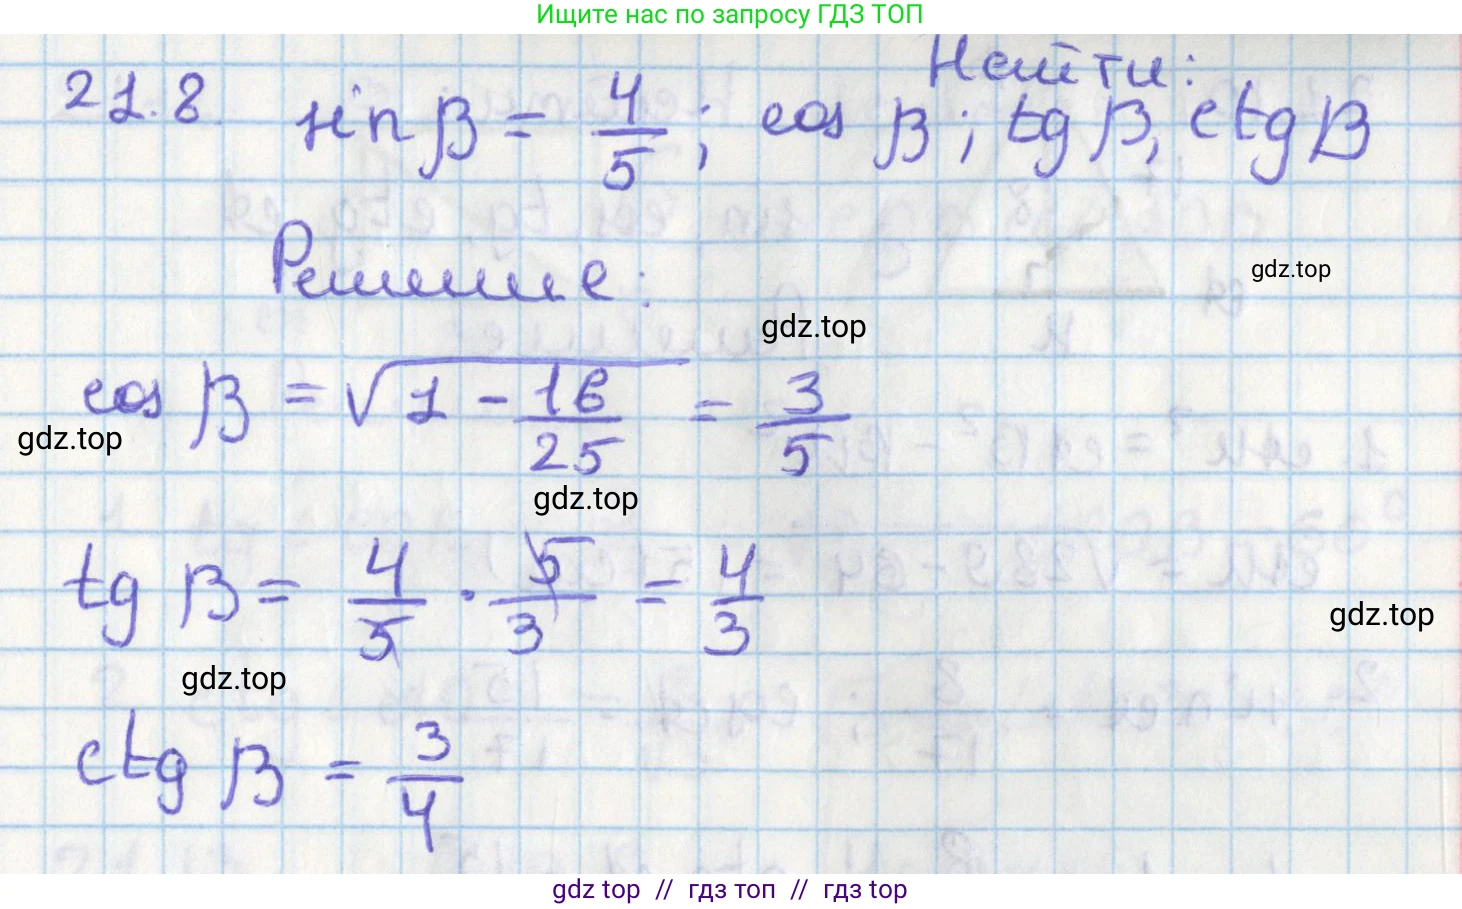 Ищите нас по запросу ГДЗ ТОП
Найти:
21.8 sin β = 4/5; cos β; tg β, ctg β
Решение:
gdz.top
gdz.top
cos β = √(1 - 16/25) = 3/5
gdz.top
gdz.top
tg β = 4/5 · 5/3 = 4/3
gdz.top
gdz.top
ctg β = 3/4
gdz top // гдз топ // гдз top